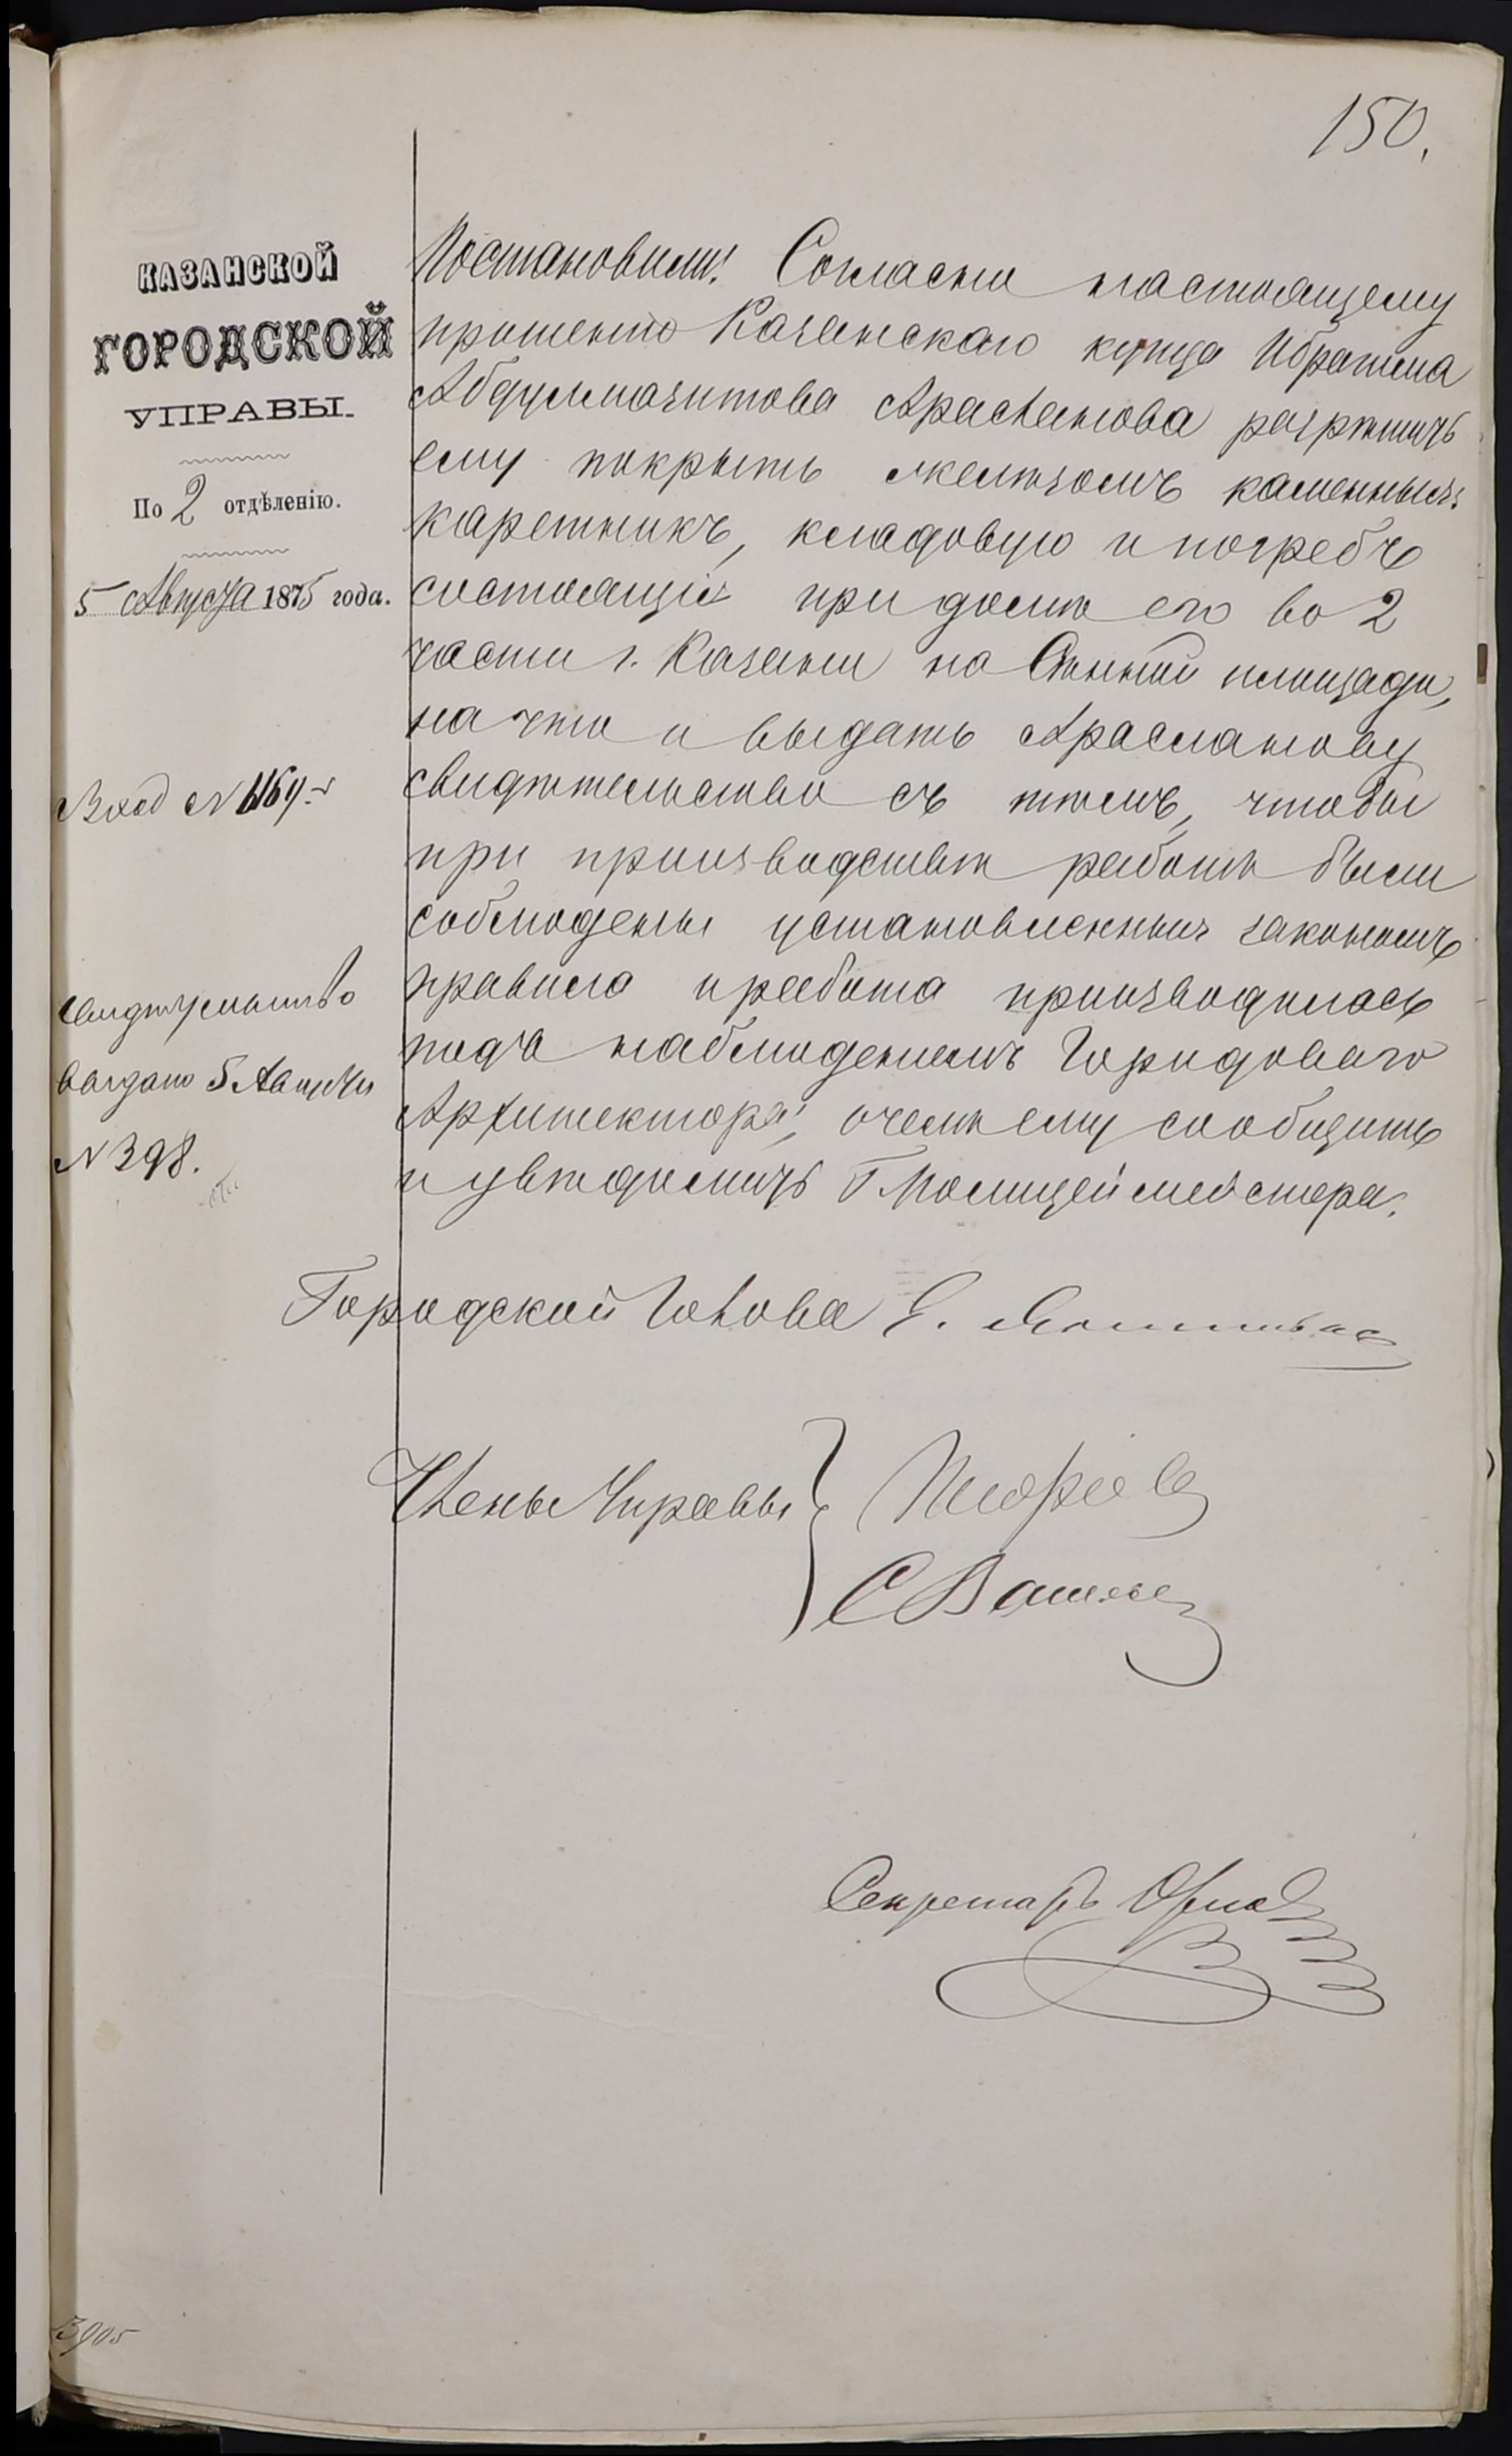 150.
КАЗАНСКОЙ
ГОРОДСКОЙ
УПРАВЫ.
По 2 отдѣленію.
5 Августа 1875 года.
Вход №
Свидѣтельство
выдано 5 Августа
№ 398.
Постановили: Согласно настоящему
прошенію Казанскаго купца Ибрагима
Абдулмазитова Арасланова разрѣшить
ему покрыть желѣзомъ каменныя:
каретникъ, кладовую и погребъ
состоящія при домѣ его во 2
части г. Казани на Сѣнной площади,
на что и выдать Арасланову
свидѣтельство съ тѣмъ, чтобы
при производствѣ работъ были
соблюдены установленныя закономъ
правила и работа производилась
подъ наблюденіемъ Городоваго
Архитектора, о чемъ ему сообщить
и увѣдомить Г Полицеймейстера.
Городской Голова
Члены Управы
С
Секретарь Орлов
3905